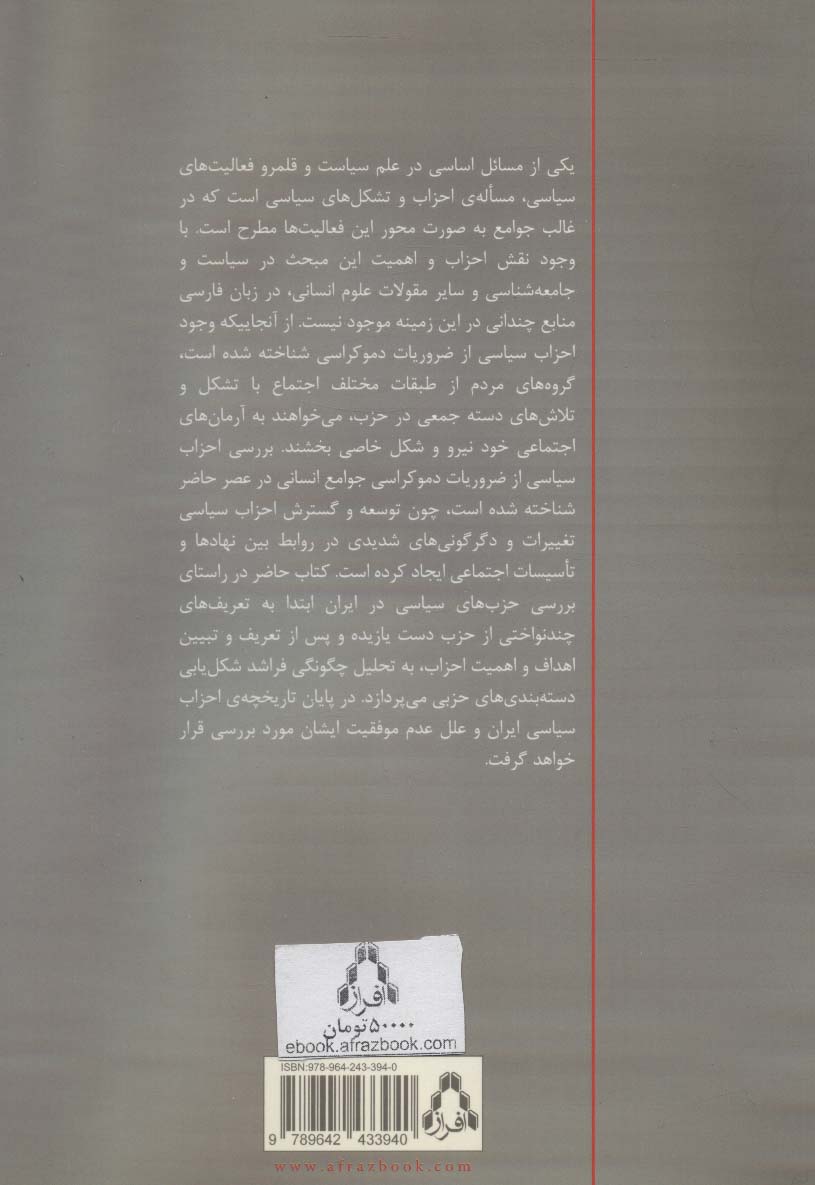 یکی از مسائل اساسی در علم سیاست و قلمرو فعالیت‌های
سیاسی، مسأله‌ی احزاب و تشکل‌های سیاسی است که در
غالب جوامع به صورت محور این فعالیت‌ها مطرح است. با
وجود نقش احزاب و اهمیت این مبحث در سیاست و
جامعه‌شناسی و سایر مقولات علوم انسانی، در زبان فارسی
منابع چندانی در این زمینه موجود نیست. از آنجاییکه وجود
احزاب سیاسی از ضروریات دموکراسی شناخته شده است،
گروه‌های مردم از طبقات مختلف اجتماع با تشکل و
تلاش‌های دسته جمعی در حزب، می‌خواهند به آرمان‌های
اجتماعی خود نیرو و شکل خاصی بخشند. بررسی احزاب
سیاسی از ضروریات دموکراسی جوامع انسانی در عصر حاضر
شناخته شده است، چون توسعه و گسترش احزاب سیاسی
تغییرات و دگرگونی‌های شدیدی در روابط بین نهادها و
تأسیسات اجتماعی ایجاد کرده است. کتاب حاضر در راستای
بررسی حزب‌های سیاسی در ایران ابتدا به تعریف‌های
چندنواختی از حزب دست یازیده و پس از تعریف و تبیین
اهداف و اهمیت احزاب، به تحلیل چگونگی فراشد شکل‌یابی
دسته‌بندی‌های حزبی می‌پردازد. در پایان تاریخچه‌ی احزاب
سیاسی ایران و علل عدم موفقیت ایشان مورد بررسی قرار
خواهد گرفت.
افراز
۵۰۰۰۰ تومان
ebook.afrazbook.com
ISBN:978-964-243-394-0
افراز
9 789642 433940
www.afrazbook.com